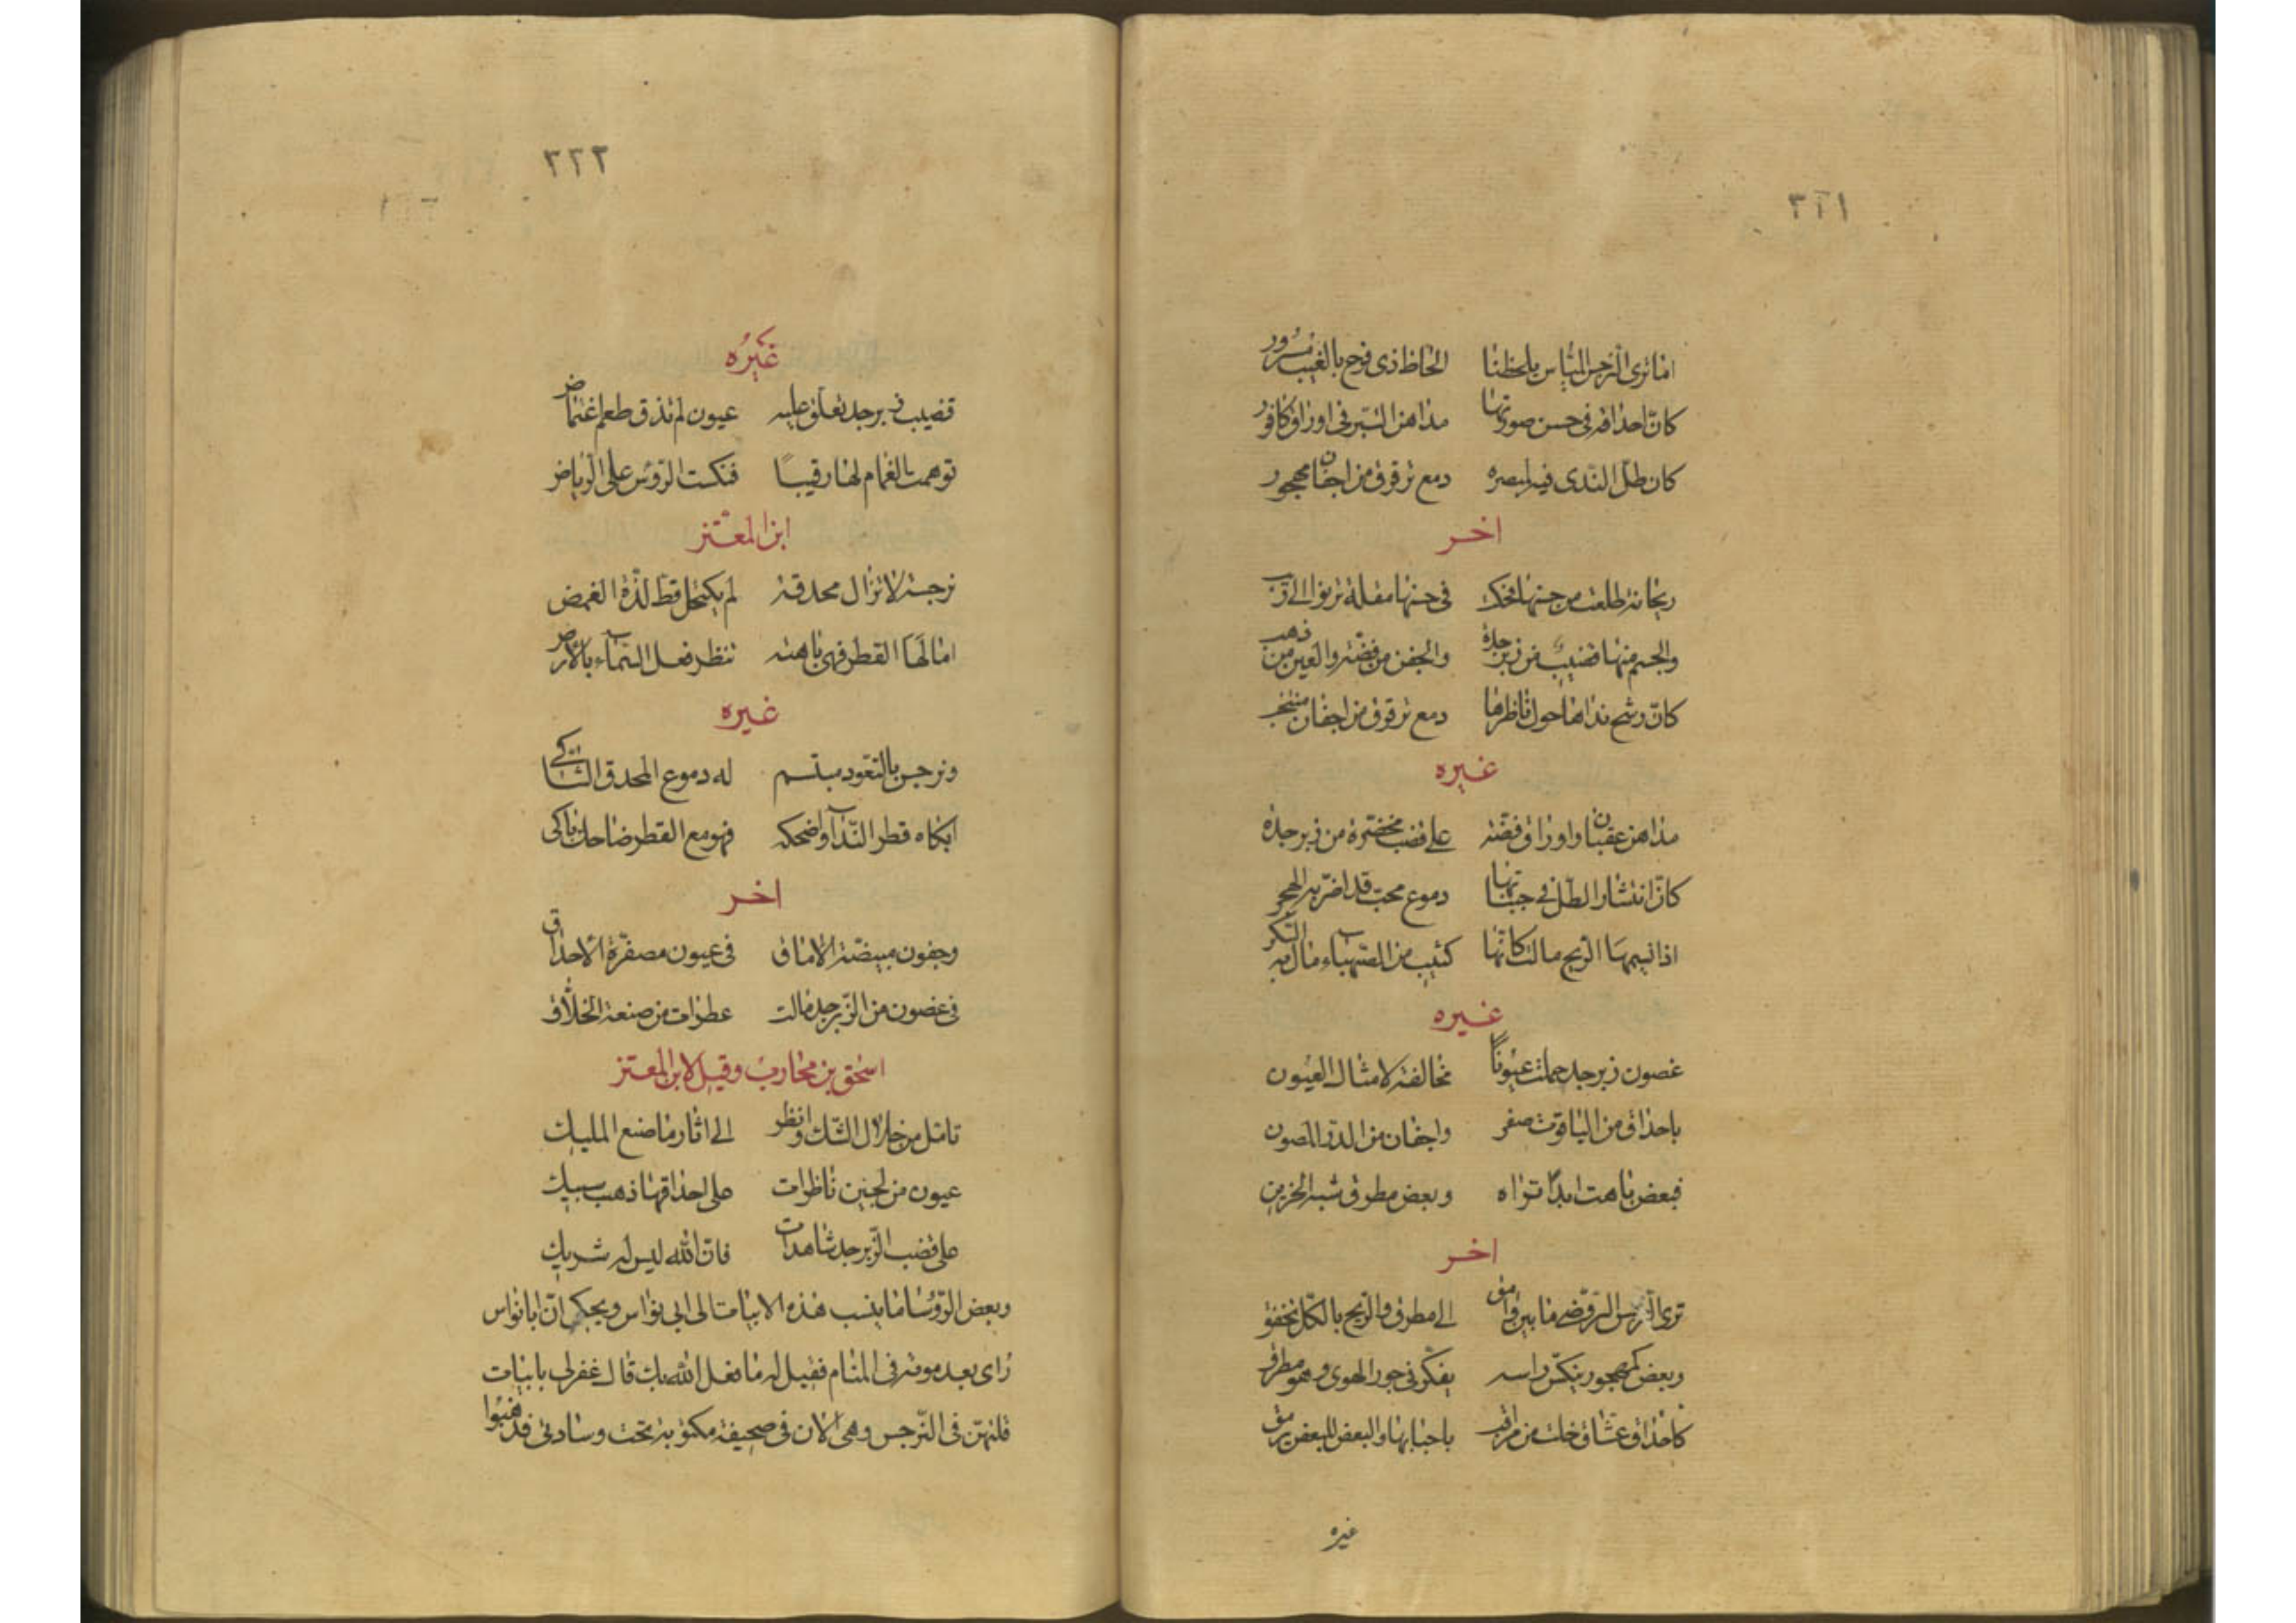 ٣٢١
اما ترى النرجس المياس يلحظنا الحاظ ذى فرح بالغيب مسرور
كانّ احداقه فى حسن صورتها مداهن التبر فى اوراق كافور
كان طلّ الندى فيه لمبصره دمع ترقرق من اجفان مهجور
اخر
ريحانة طلعت من جنبها فى حسنها مقلة ترنوا الى
والجسم منها قضيب من زبرجدة والجفن من فضة والعين من ذهب
كانّ رشح نداها حول ناظرها دمع ترقرق من اجفان منتحب
غيره
مداهن عقيان واوراق فضّة على قضب مخضرّة من زبرجدة
كانّ انتشار الطلّ فى جنباتها دموع محب قد اضرّ به الهجر
اذا الريح مالت كانّها كئيب من الصهباء مال به السّكر
غيره
غصون زبرجد حملت عيونًا مخالفة لامثال العيون
باحداق من الياقوت صفر واجفان من الدرّ المصون
فبعض باهت ابدًا تراه وبعض مطرق شبه الحزين
اخر
ترى النرجس الروضى ما بين وامق الى مطرق والريح بالكلّ تخفق
وبعض كمهجور ينكّس راسه يفكّر فى جور الهوى وهو مطرق
كاحداق عشّاق خلت من مراقب باحبابها والبعض للبعض يرمق
غيره
٣٢٢
غيرُه
قضيب زبرجد تعلو عليه عيون لم تذق طعم اغتماض
توهمت الغمام لها رقيبًا فنكست الرّؤس على الرياض
ابن المعتز
نرجسة لا تزال محدقة لم يكتحل قطّ لذّة الغمض
امالها القطر فهى باهتة تنظر فعل السّماء بالارض
غيره
ونرجس مبتسم له دموع المحدق الشّاكى
ابكاه قطر النّدا واضحكه فهو مع القطر ضاحك باكى
اخر
وجفون مبيضّة الاماق فى عيون مصفرّة الاحداق
فى غصون من الزّبرجد مالت عطرات من صنعة الخلّاق
اسحق بن محارب وقيل لابن المعتز
تامّل من خلال الشّك وانظر الى اثار ما صنع المليك
عيون من لجين ناظرات على احداقها ذهب سبيك
على قضب الزّبرجد شاهدات فانّ الله ليس له شريك
وبعض الرّؤسا ما ينسب هذه الابيات الى ابى نواس ويحكى انّ ابا نواس
راى بعد موته فى المنام فقيل له ما فعل الله بك قال غفر لى بابيات
قلتهنّ فى النّرجس وهى الان فى صحيفة مكتوبة تحت وسادتى فذهبوا